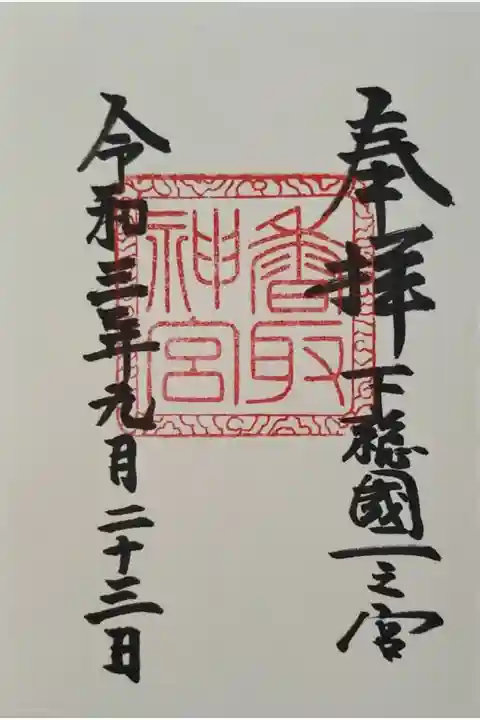 奉拝 下総國一之宮
香取
神宮
令和三年九月二十三日